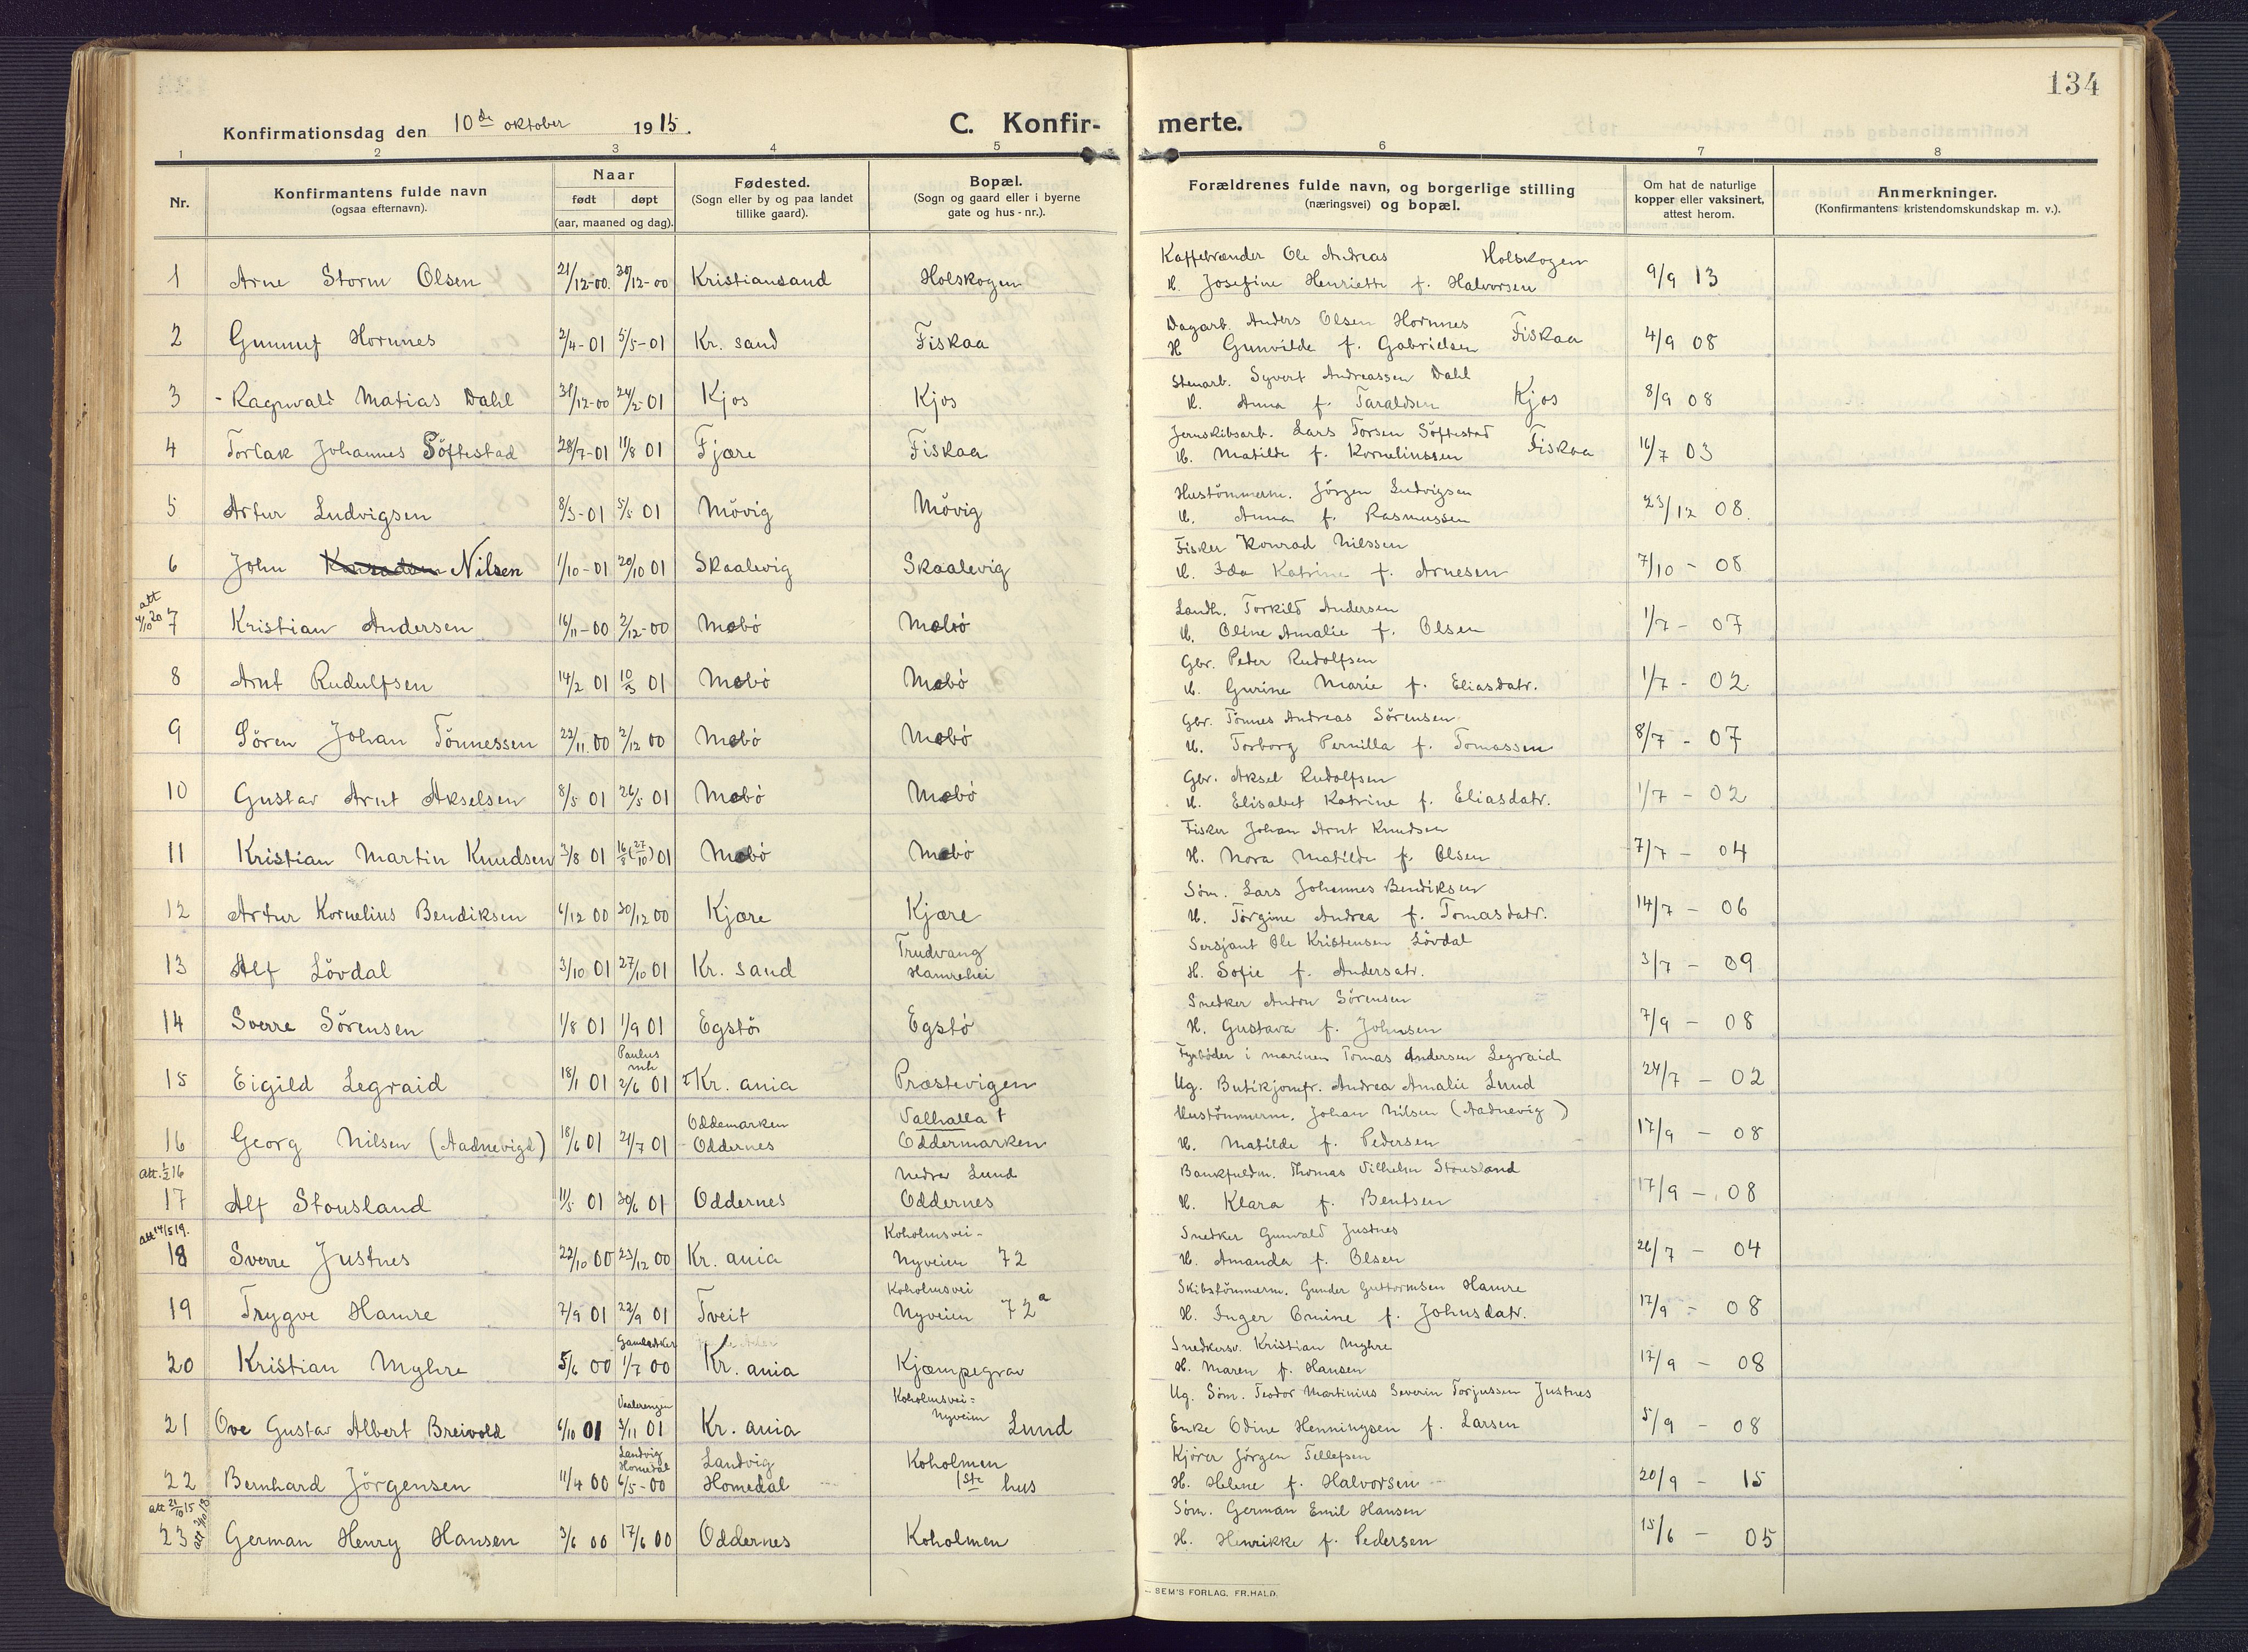 134
Konfirmationsdag den 10de oktober 1915.
C. Konfir- merte.
1 2 3 4 5 6 7 8
Nr.
Konfirmantens fulde navn
(ogsaa efternavn).
Naar
født døpt
(aar, maaned og dag).
Fødested.
(Sogn eller by og paa landet
tillike gaard).
Bopæl.
(Sogn og gaard eller i byerne
gate og hus-nr.).
Forældrenes fulde navn, og borgerlige stilling
(næringsvei) og bopæl.
Om hat de naturlige
kopper eller vaksinert,
attest herom.
Anmerkninger.
(Konfirmantens kristendomskundskap m. v.).
Kaffebrænder Ole Andreas Holskogen
1 Arne Storm Olsen 21/12-00. 30/12-00 Kristiansand Holskogen H. Josefine Henriette f. Halvorsen 9/9 13
Dagarb. Anders Olsen Hornnes
2 Gunnuf Hornnes 2/4-01 5/5-01 Kr. sand Fiskaa H Gunvilde f. Gabrielsen Fiskaa 4/9 08
Stenarb. Syvert Andreassen Dahl
3 - Ragnvald Matias Dahl 31/12-00 24/2-01 Kjos Kjos H. Anna f. Taraldsen Kjos 8/9 08
Jernskibsarb. Lars Torsen Söftestad
4 Torlak Johannes Söftestad 28/7-01 11/8 01 Fjære Fiskaa H. Matilde f. Korneliussen Fiskaa 16/7 03
Hustömmerm. Jörgen Ludvigsen
5 Artur Ludvigsen 8/3-01 5/5 01 Mövig Mövig H. Anna f. Rasmussen 23/12 08.
Fisker Konrad Nilssen
6 John Konradsen Nilsen 1/10-01 20/10 01 Skaalevig Skaalevig H. Ida Katrine f. Arnesen 7/10 - 08
att 4/10 20
Landh. Torkild Andersen
7 Kristian Andersen 16/11-00 2/12-00 Mebö Mebö H. Oline Amalie f. Olsen 1/7 - 07
Gbr. Peder Rudolfsen
8 Arnt Rudulfsen 14/2 01 10/3 01 Mebö Mebö H. Gurine Marie f. Eliasdatr. 1/7 - 02
Gbr. Tönnes Andreas Sörensen
9 Sören Johan Tönnessen 22/11.00 2/12 00 Mebö Mebö H. Torborg Pernilla f. Tomassen 8/7 - 07
Gbr. Aksel Rudolfsen
10 Gustav Arnt Akselsen 8/5 01 26/5 01 Mebö Mebö H. Elisabet Katrine f. Eliasdatr. 1/7 - 02
Fisker Johan Arnt Knudsen
11 Kristian Martin Knudsen 3/8 01 16/8 (27/10) 01 Mebö Mebö H. Nora Matilde f. Olsen 7/7 - 04
Söm. Lars Johannes Bendiksen
12 Artur Kornelius Bendiksen 6/12 00 30/12 00 Kjære Kjære H. Torgine Andrea f. Tomasdatr. 14/7 - 06
Trudvang Sersjant Ole Kristensen Lövdal
13 Alf Lövdal 3/10 01 27/10 01 Kr. sand Hamrehei H. Sofie f. Andersdatr. 3/7 - 09
Snedker Anton Sörensen
14 Sverre Sörensen 1/8 01 1/9 01 Egstö Egstö H. Gustava f. Johnsen 7/9 - 08
Paulus mh Fyrböder i marinen Tomas Andersen Legraid
15 Eigild Legraid 18/1 01 2/6 01 Kr. ania Præstevigen Ug. Butikjomfr. Andrea Amalie Lund 24/7 - 02
Oddemarken Valhalla Hustömmerm. Johan Nilsen (Aadnevig)
16 Georg Nilsen (Aadnevigd) 18/6 01 21/7 01 Oddernes Oddermarken H. Matilde f. Pedersen 17/9 - 08
att. 1/2 16
Nedre Lund Bankfuldm. Thomas Vilhelm Stousland
17 Alf Stousland 11/5 01 30/6 01 Oddernes Oddernes H. Klara f. Bentsen 17/9 - 08
att 14/5 19.
Koholmsvei- Snedker Gunvald Justnes
18 Sverre Justnes 22/10 00 23/12 00 Kr. ania Nyveien 72 H. Amanda f. Olsen 26/7 - 04
Koholmsvei Skibstömmerm. Gunder Guttormsen Hamre
19 Trygve Hamre 7/9 01 22/9 01 Tveit Nyveien 72a H. Inger Omine f. Johnsdatr. 17/9 - 08
Gamleaker Snedkersv. Kristian Myhre
20 Kristian Myhre 5/6 00 1/7 00 Kr. ania Kjæmpegrav H. Maren f. Hansen 17/9 - 08
Vaalerengen Koholmsvei- Ug. Söm. Teodor Martinius Severin Torjussen Justnes
21 Ove Gustav Albert Breivold 6/10 01 3/11 01 Kr. ania Nyveien Lund Enke Odine Henningsen f. Larsen 5/9 - 08
Landvig Homedal Landvig Koholmen Kjörer Jörgen Tellefsen
22 Bernhard Jörgensen 11/4 00 6/5-00 Homedal 1ste hus H. Helene f. Halvorsen 20/9 - 15
att 21/10 15
Söm. German Emil Hansen
23 German Henry Hansen 3/6 00 17/6 00 Oddernes Koholmen H. Henrikke f. Pedersen 15/6 - 05
SEM'S FORLAG, FR.HALD.